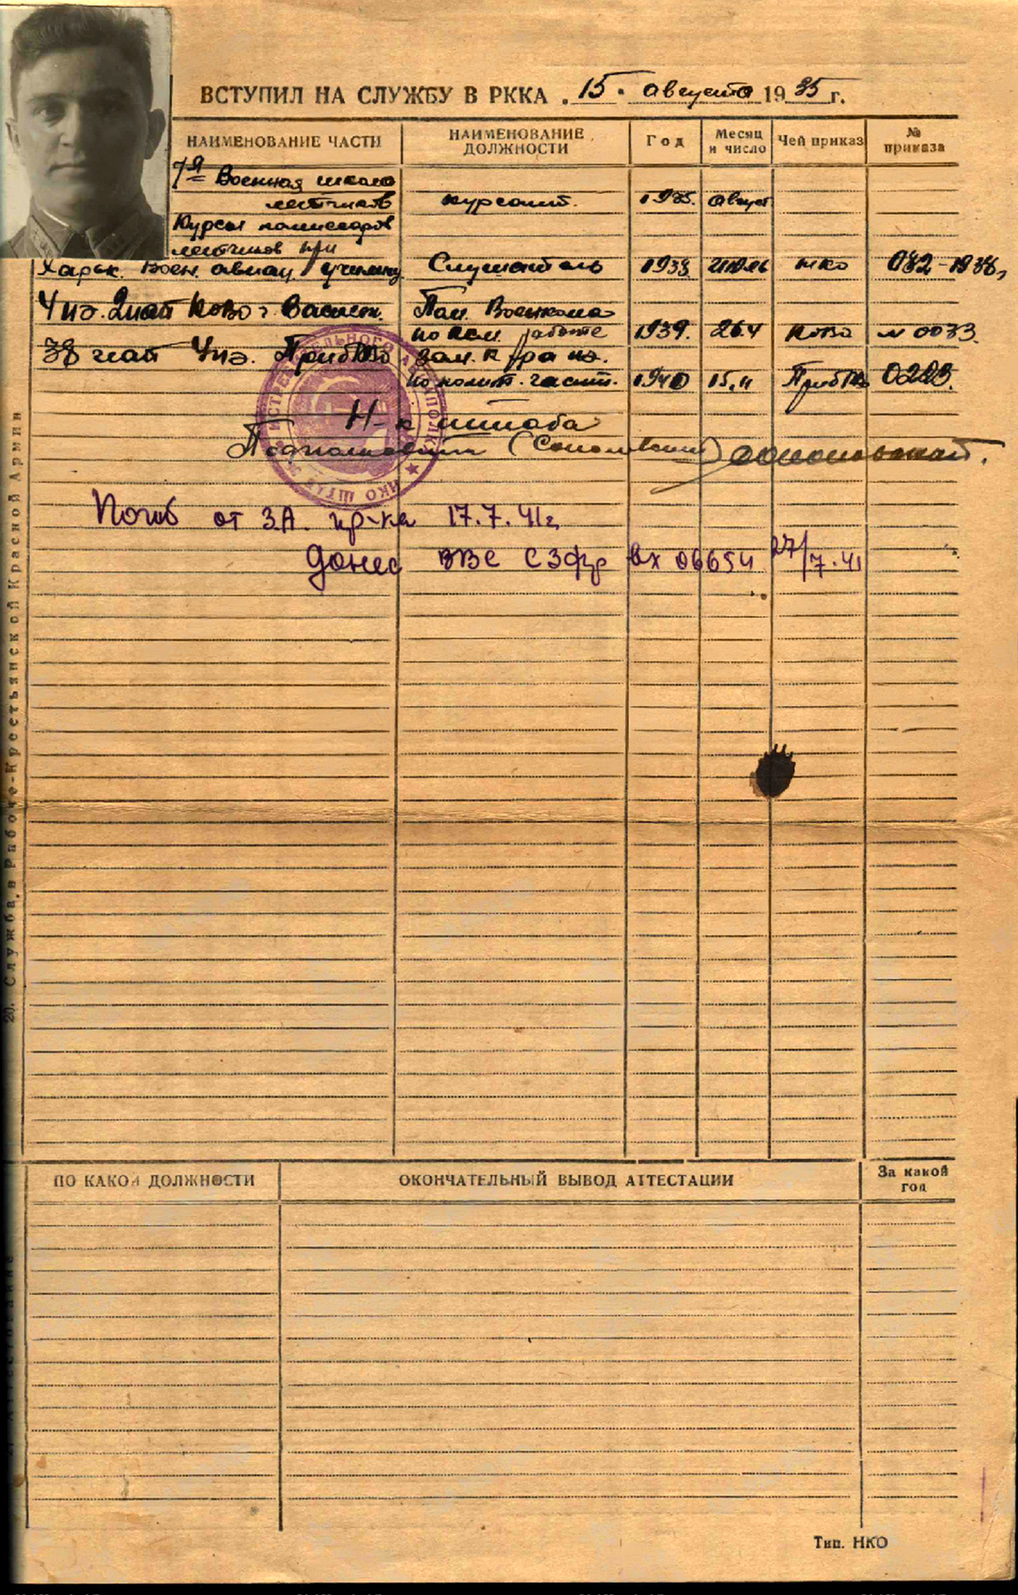 ВСТУПИЛ НА СЛУЖБУ В РККА 15. августа 1935 г.
НАИМЕНОВАНИЕ ЧАСТИ НАИМЕНОВАНИЕ ДОЛЖНОСТИ Год Месяц и число Чей приказ № приказа
7я Военная школа
летчиков курсант. 1935. август
Курсы комиссаров
летчиков при
Харьк. Воен. авиац. училищ Слушатель 1938 июль НКО 082-1938,
4 иэ. 2иап КОВО г. Васильк. Пом. Военкома
по ксм. работе 1939. 26.4 КОВО № 0033.
38 иап 4 иэ. ПрибВО зам. к-ра иэ.
по полит. части. 1940 15.11 ПрибВО 0223.
Н-к штаба
Подполковник
ИСТРЕБИТЕЛЬНОГО АВИАПОЛКА ★ НКО ШТАБ
Погиб от З.А. пр-ка 17.7.41г.
Донес ВВС СЗфр вх 06654 27/7.41
20. Служба в Рабоче-Крестьянской Красной Армии
ПО КАКОЙ ДОЛЖНОСТИ ОКОНЧАТЕЛЬНЫЙ ВЫВОД АТТЕСТАЦИИ За какой год
Тип. НКО